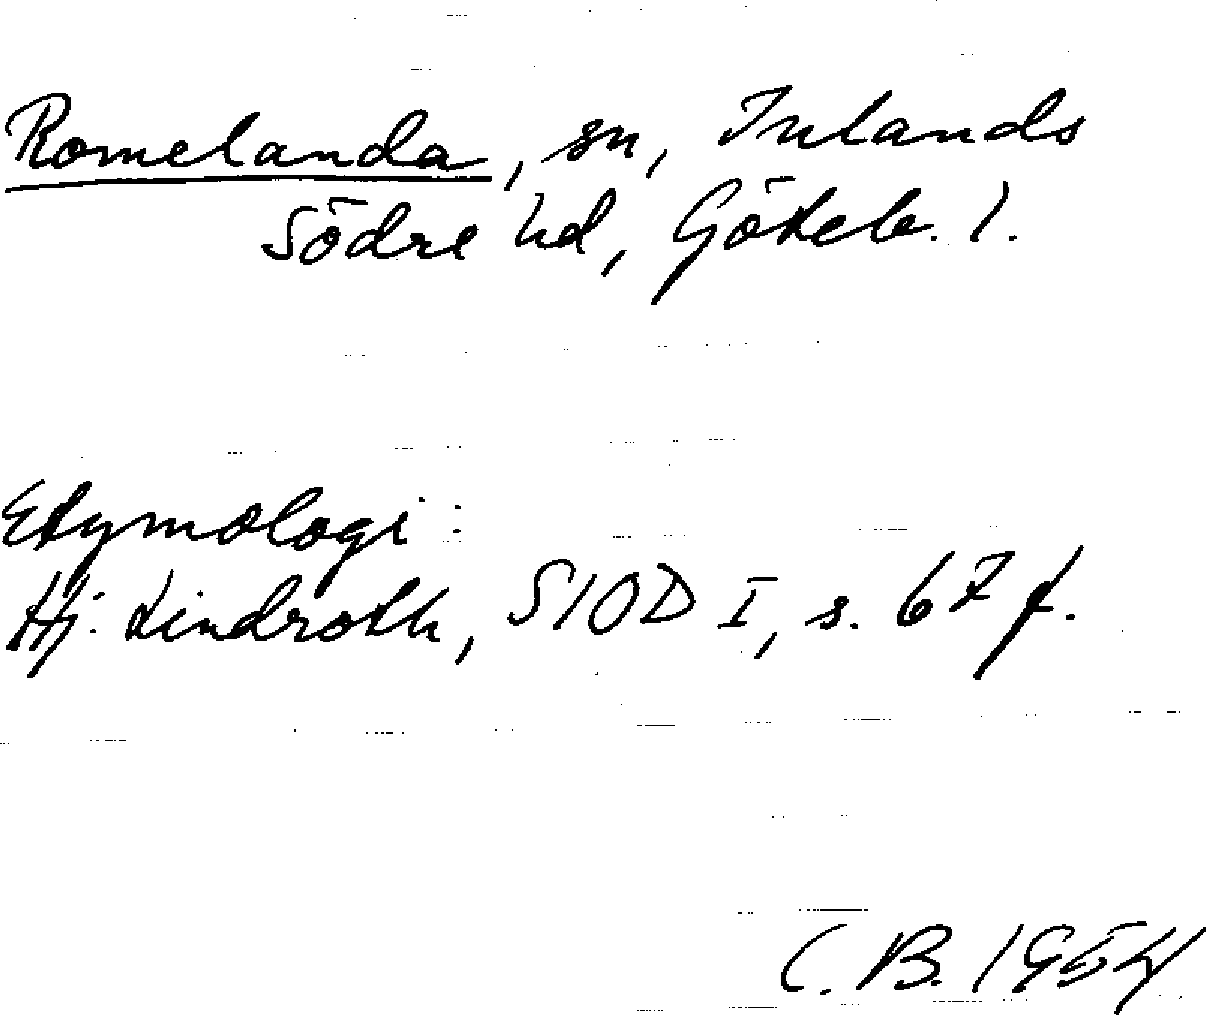 Romelanda, sn, Inlands
Södre hd, Göteb. l.
Etymologi:
Hj. Lindroth, SIOD I, s. 67 f.
C. B. 1954